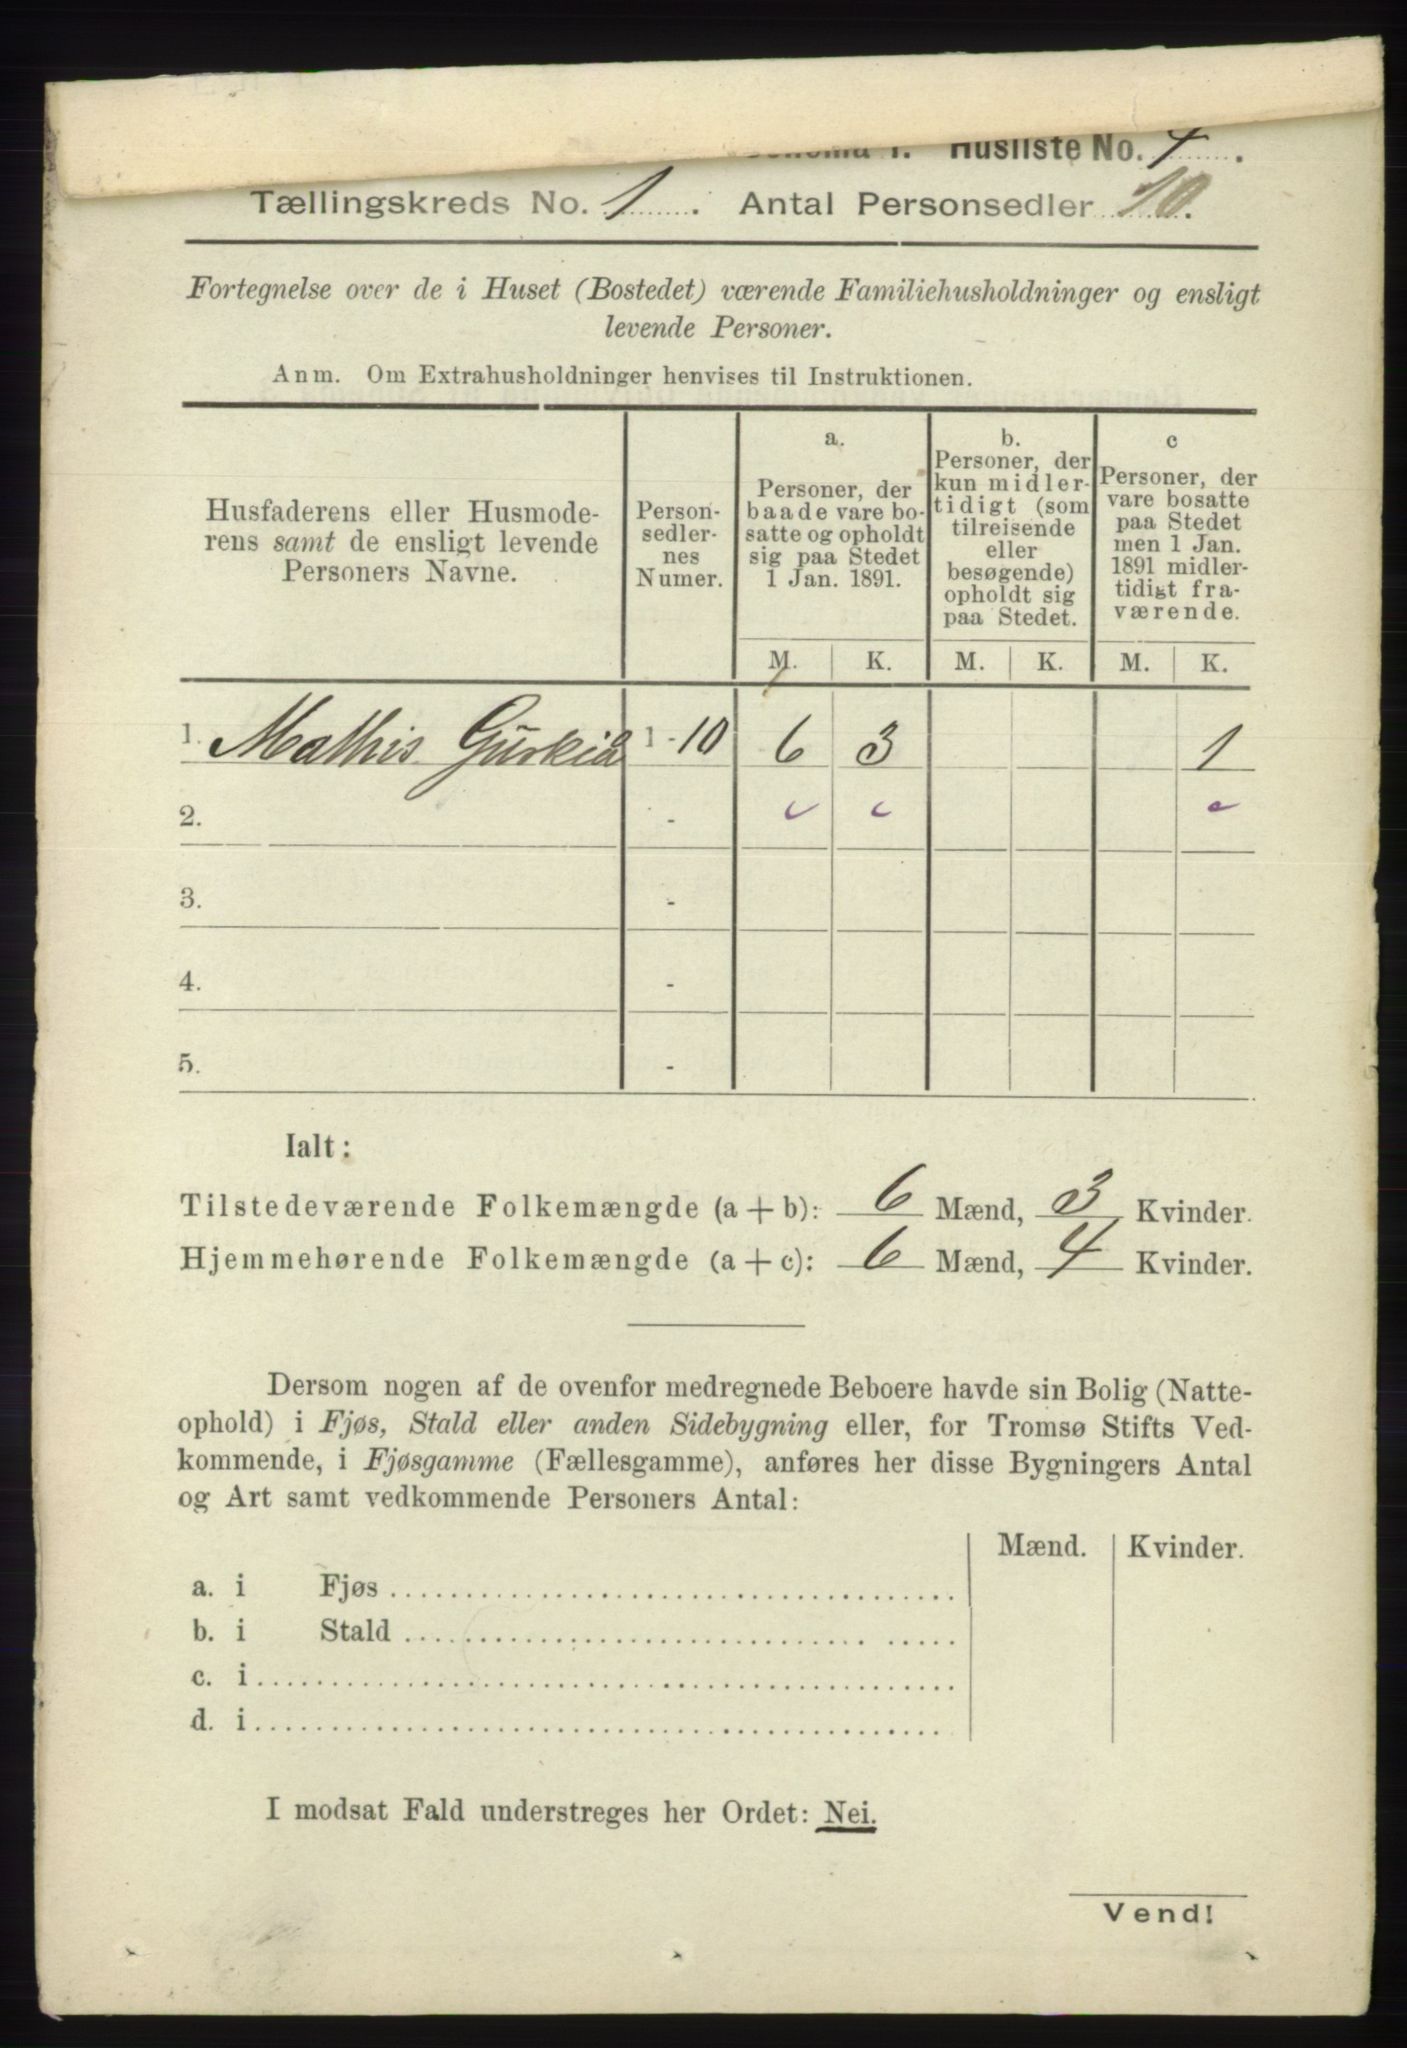 Husliste No. 4.
Tællingskreds No. 1. Antal Personsedler 10.
Fortegnelse over de i Huset (Bostedet) værende Familiehusholdninger og ensligt
levende Personer.
Anm. Om Extrahusholdninger henvises til Instruktionen.
Husfaderens eller Husmode-
rens samt de ensligt levende
Personers Navne.
Person-
sedler-
nes
Numer.
a.
Personer, der
baade vare bo-
satte og opholdt
sig paa Stedet
1 Jan. 1891.
b.
Personer, der
kun midler-
tidigt (som
tilreisende
eller
besøgende)
opholdt sig
paa Stedet.
c
Personer, der
vare bosatte
paa Stedet
men 1 Jan.
1891 midler-
tidigt fra-
værende.
M. K. M. K. M. K.
1. Mathis 1 - 10 6 3 1
2. -
3. -
4. -
5. -
Ialt:
Tilstedeværende Folkemængde (a + b): 6 Mænd, 3 Kvinder.
Hjemmehørende Folkemængde (a + c): 6 Mænd, 4 Kvinder.
Dersom nogen af de ovenfor medregnede Beboere havde sin Bolig (Natte-
ophold) i Fjøs, Stald eller anden Sidebygning eller, for Tromsø Stifts Ved-
kommende, i Fjøsgamme (Fællesgamme), anføres her disse Bygningers Antal
og Art samt vedkommende Personers Antal:
Mænd. Kvinder.
a. i Fjøs
b. i Stald
c. i
d. i
I modsat Fald understreges her Ordet: Nei.
Vend!